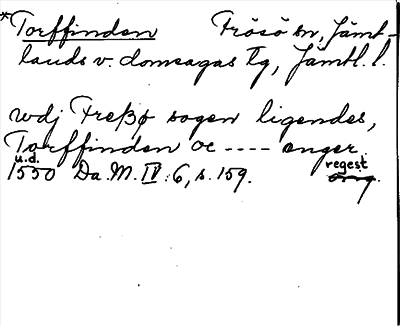 *Torffinden Frösö sn, Jämt-
lands v. domsagas tg, Jämtl. l.
wdj Freßø sogen ligendes,
Torffinden oc ---- enger
u.d. regest
1550 Da. M. IV: 6, s. 159. orig.